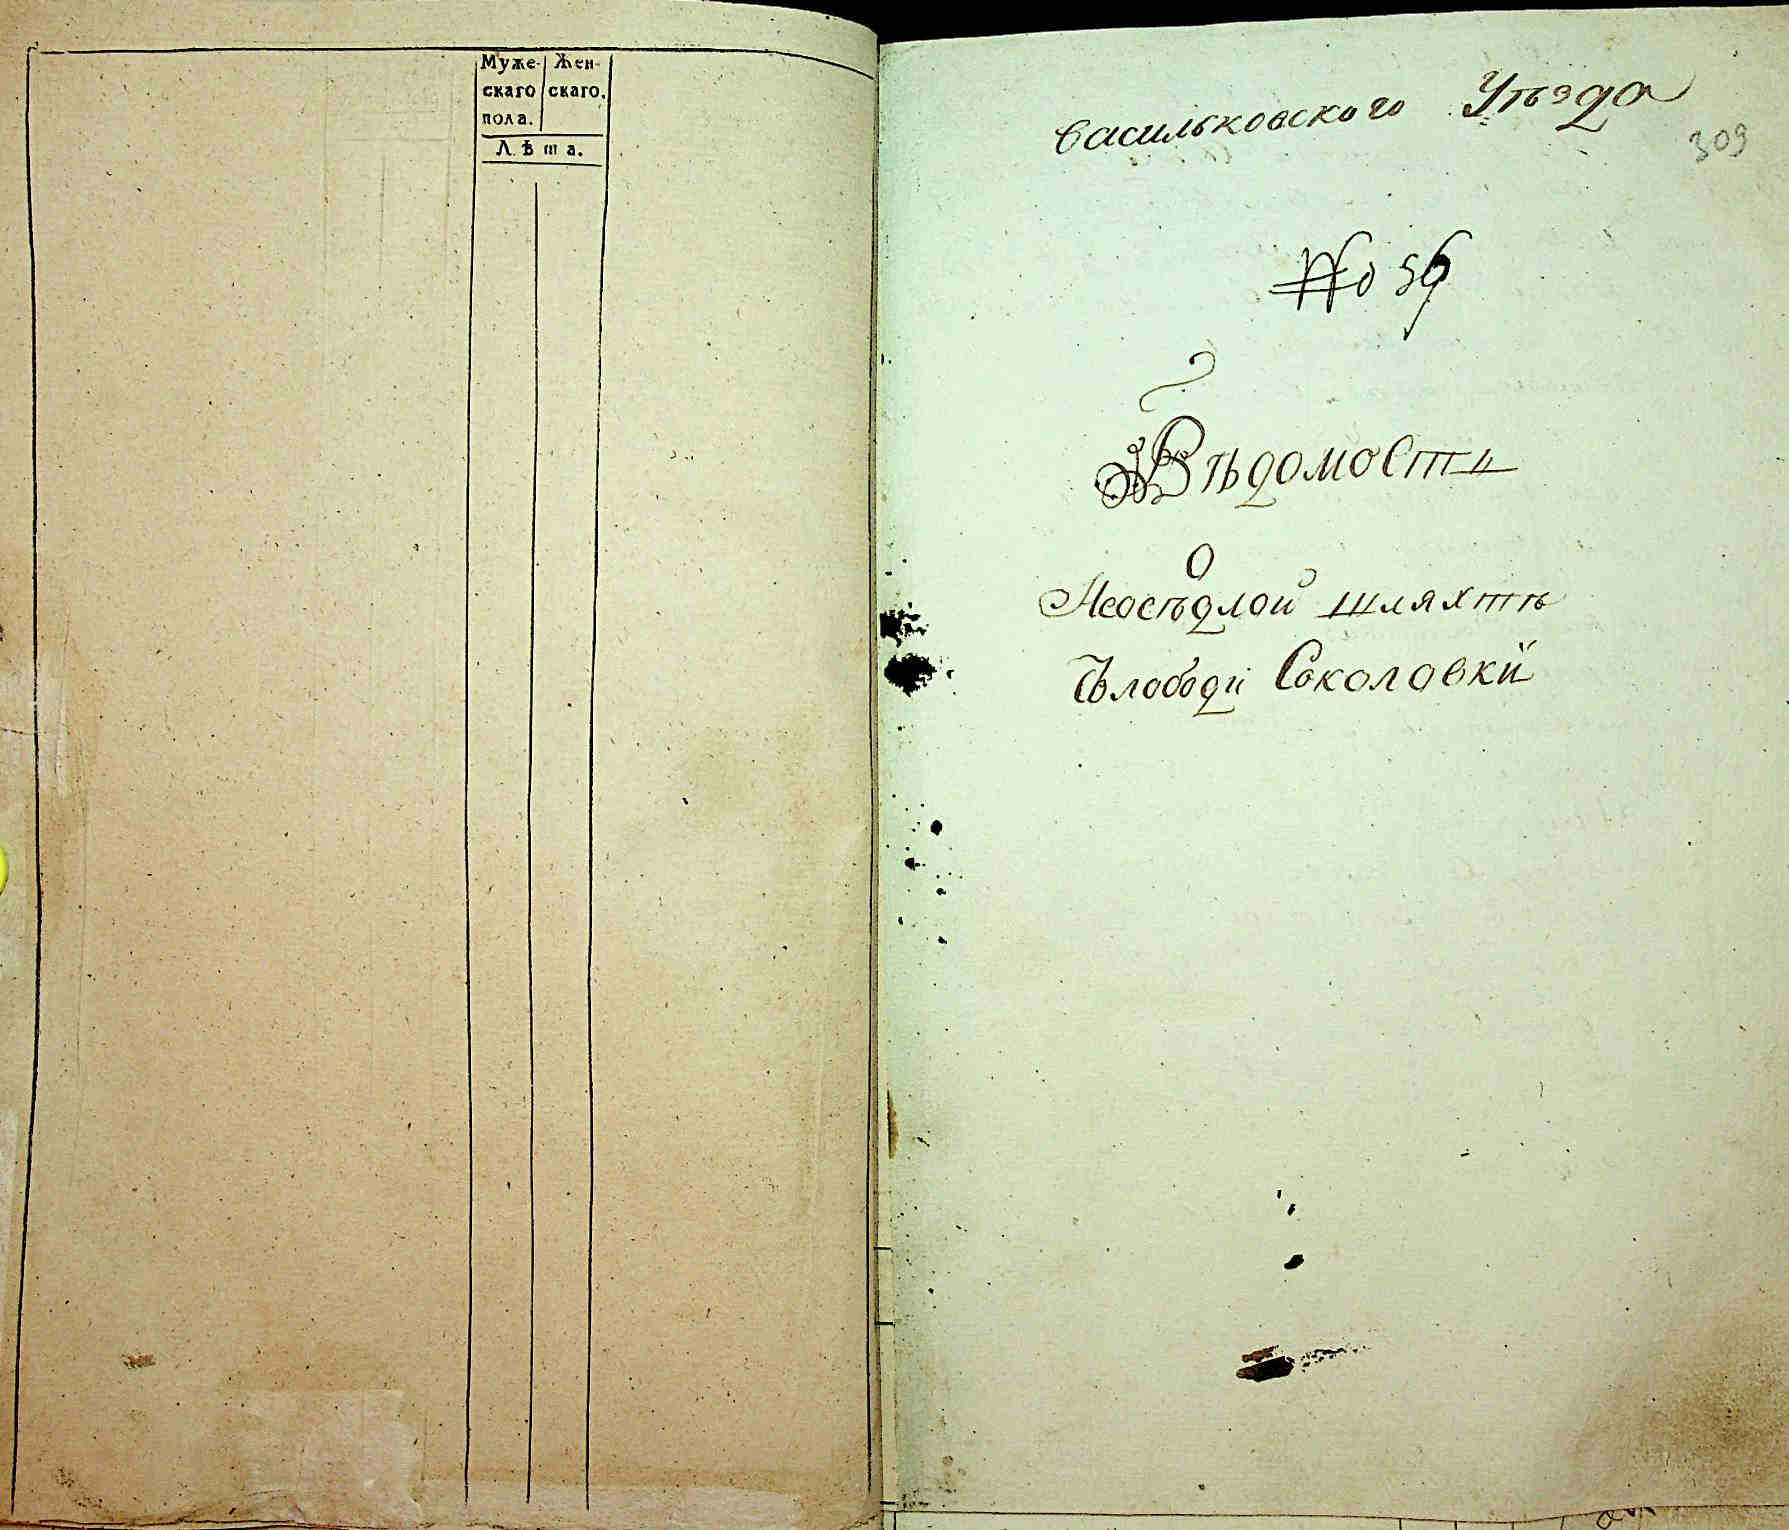 Муже- Жен-
скаго скаго.
пола.
Лѣта.
Васильковского Уѣзда
309
№ 56
Вѣдомости
О
Неосѣдлой шляхтѣ
Слободи Соколовки